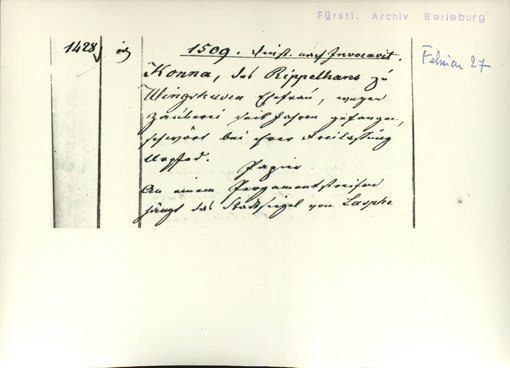 Fürstl. Archiv Berleburg
1428
1509. Dinst. nach Invocavit.
Februar 27
Konna, des Rippelhans zu
Wingshusen Ehefrau, wegen
Zauberei seit Jahren gefangen,
schwört bei ihrer Freilassung
Urpfed.
Papier
An einem Pergamentstreifen
hängt das Stadtsiegel von Laasphe